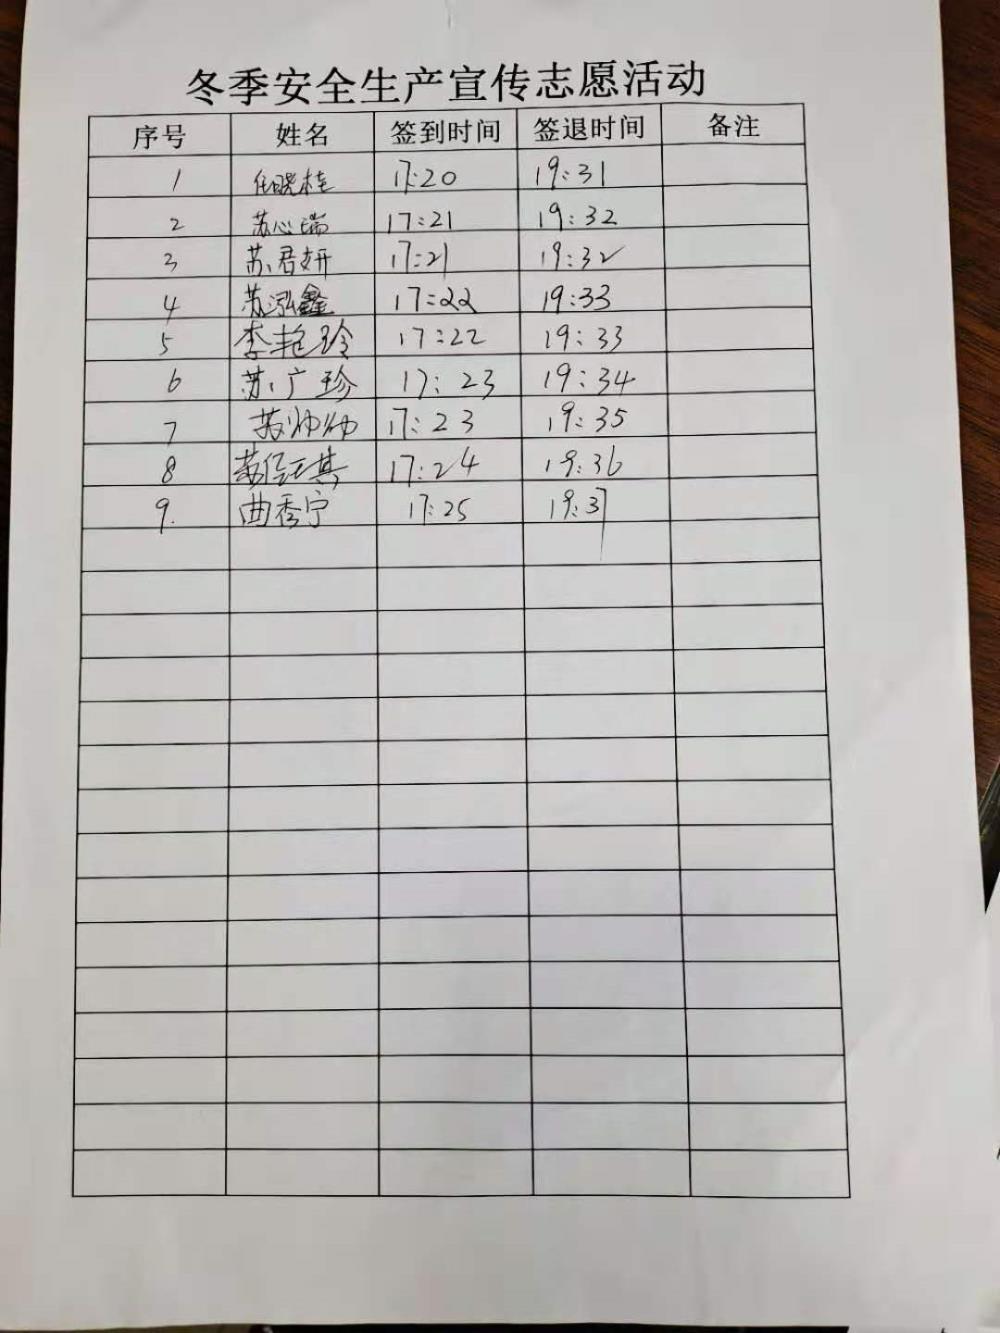 冬季安全生产宣传志愿活动
序号 姓名 签到时间 签退时间 备注
1 任晓桂 17:20 19:31
2 苏心瑞 17:21 19:32
3 苏君妍 17:21 19:32
4 苏泓鑫 17:22 19:33
5 李艳玲 17:22 19:33
6 苏广珍 17:23 19:34
7 苏帅帅 17:23 19:35
8 17:24 19:36
9. 曲秀宁 17:25 19:37